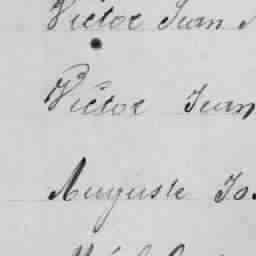 Victor Jean
Victor Jean
Auguste Jo